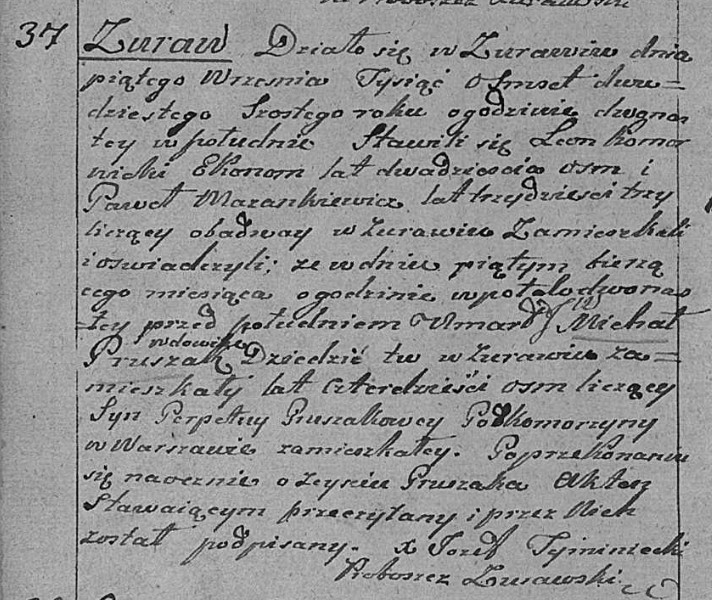 37 Zuraw Działo się w Zurawiu dnia
piątego Wrzesnia Tysiąc Osmset dwu=
dziestego Szostego roku o godzinie dwgnas
tey w południe Stawili się Leon Komor
nicki Ekonom lat dwadziescia osm i
Paweł Marankiewicz lat trzydziesci trzy
liczący obadway w Zurawiu Zamieszkali
i oswiadczyli; ze w dniu piątym bieżą
cego miesiąca o godzinie w poł do dwonas
=tey przed południem Umarł Michał
wdowiec
Pruszak Dziedzic tu w Zurawiu za=
mieszkały lat czterdzieści osm liczący
Syn Perpetuy Pruszakowey Podkomorzyny
w Warszawie zamieszkałey. Po przekonaniu
się naocznie o Zeysciu Pruszaka Akt ten
Stawaiącym przeczytany i przez Nich
został podpisany. x Jozef Tyminiecki
Proboszcz Zurawski